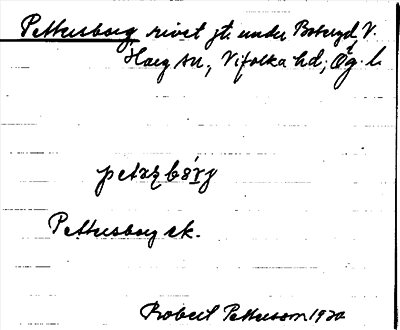 Pettersborg rivet jt. under Boteryd, V.
Harg sn, Vifolka hd; Ög. l.
petæzbórj
Pettersborg ek.
Robert Pettersson 1920